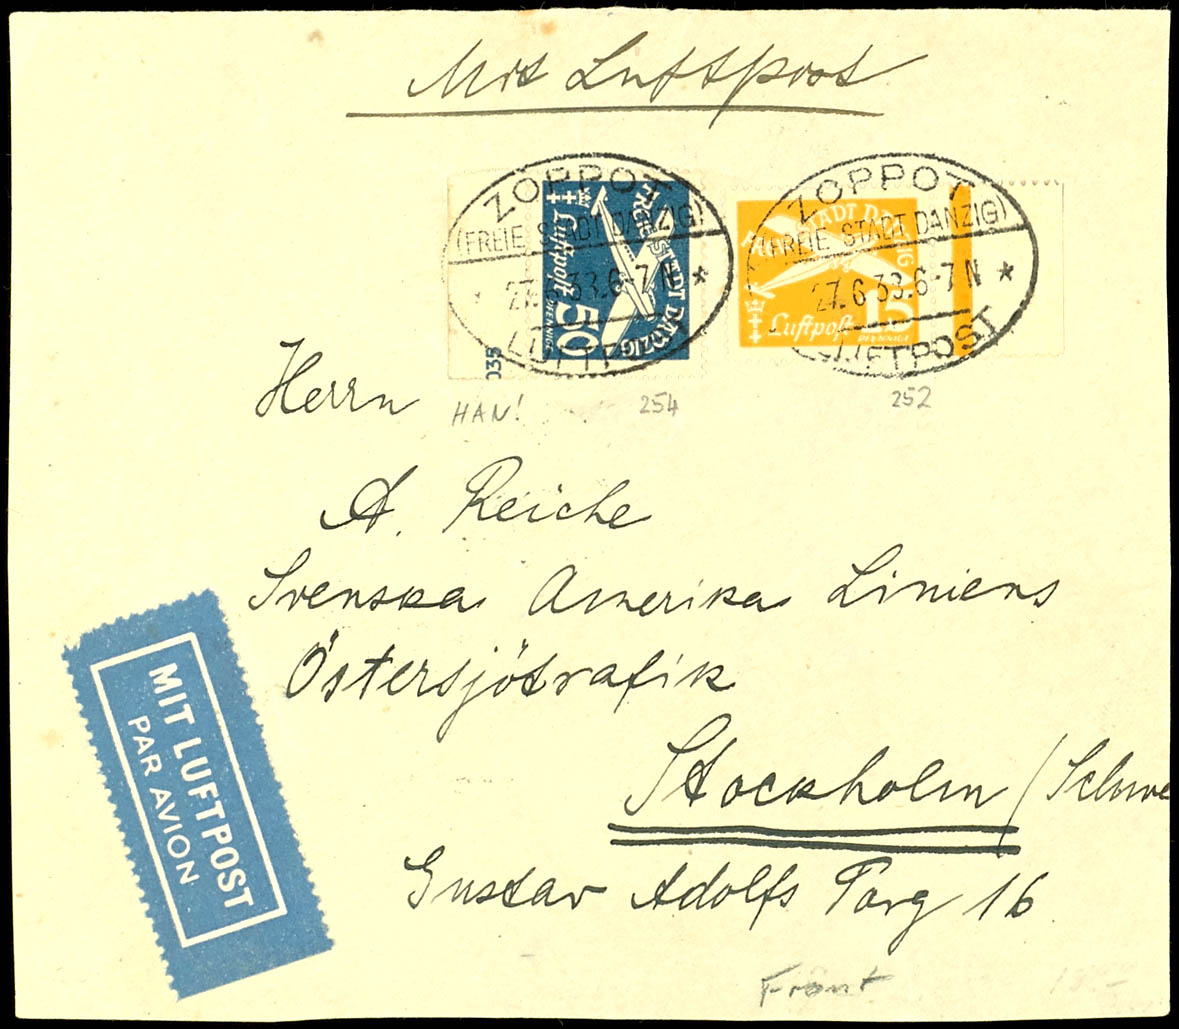 Mit Luftpost
ZOPPOT
(FREIE STADT DANZIG)
27.6.33.6-7N *
LUFTPOST
FREIE STADT DANZIG
Luftpost
50
PFENNIGE
035
ZOPPOT
(FREIE STADT DANZIG)
27.6.33.6-7N *
LUFTPOST
STADT DANZIG
Luftpost 15
PFENNIGE
HAN!
254
252
Herrn
A. Reiche
Svenska Amerika Liniens
Östersjötrafik
Stockholm / Schwe
Gustav Adolfs Torg 16
MIT LUFTPOST
PAR AVION
Front